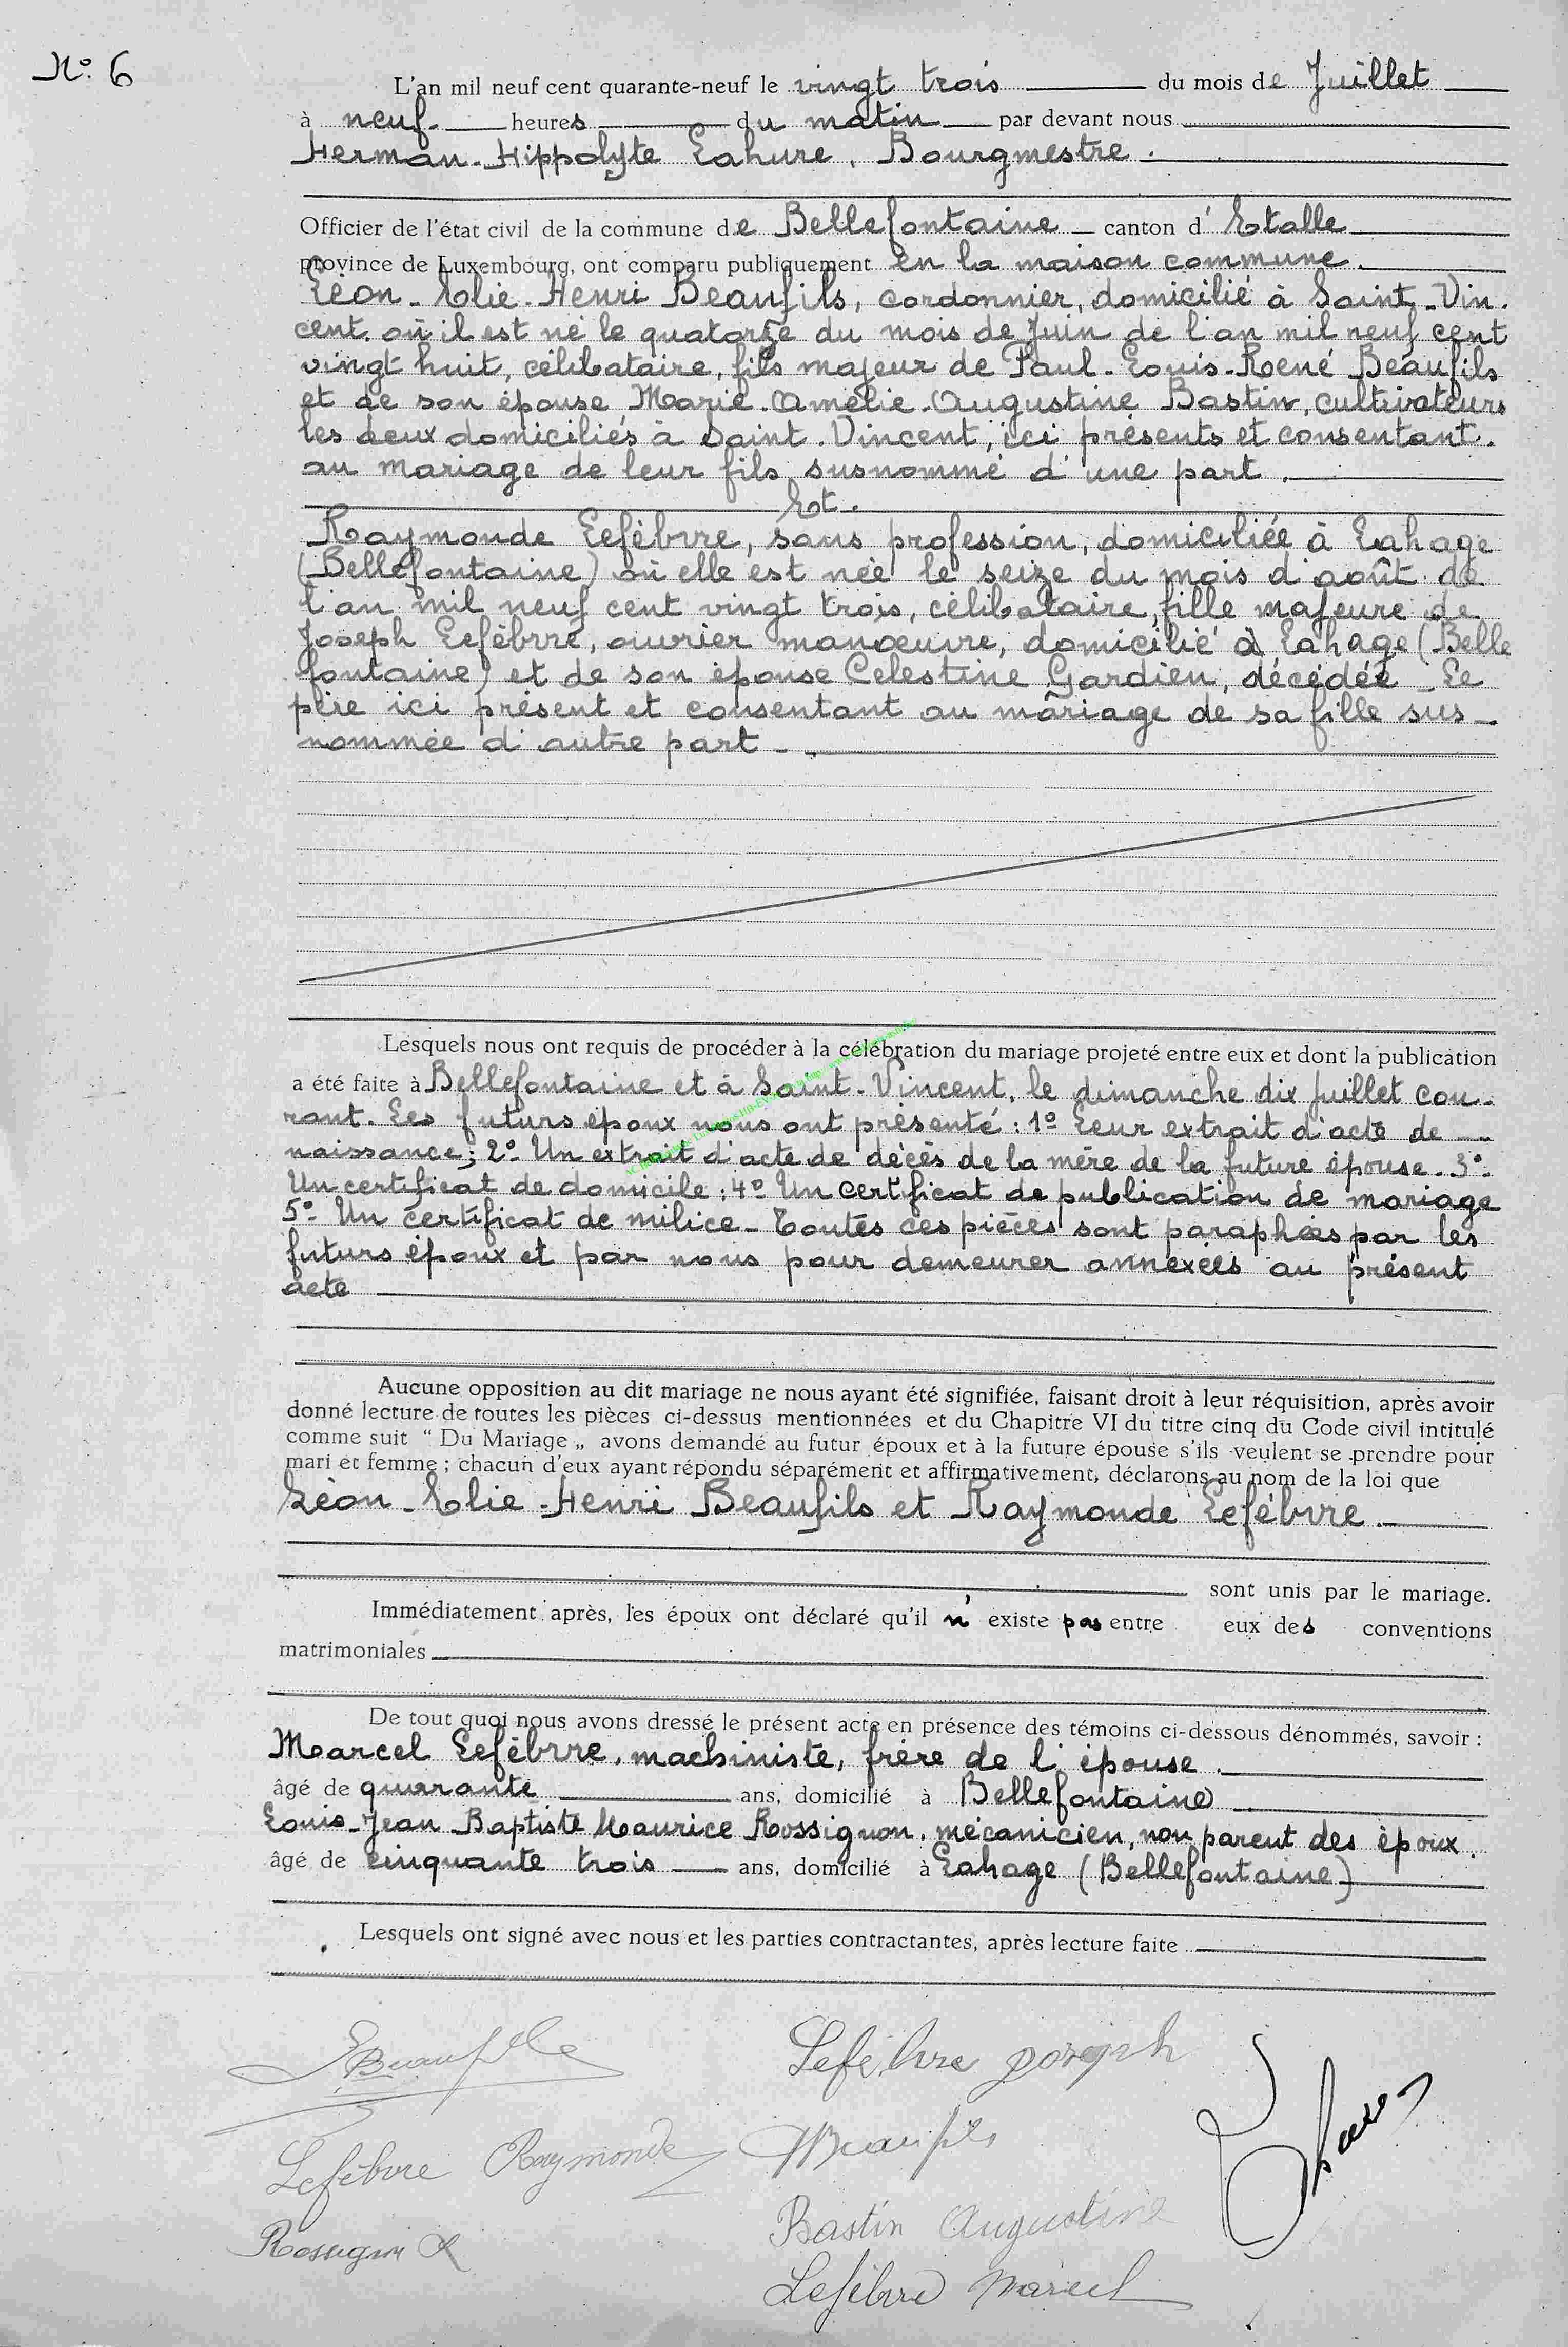 N° 6
L'an mil neuf cent quarante-neuf le vingt trois du mois de Juillet
à neuf heures du matin par devant nous
Herman-Hippolyte Lahure, Bourgmestre.
Officier de l'état civil de la commune de Bellefontaine canton d'Etalle
province de Luxembourg, ont comparu publiquement en la maison commune.
Léon-Elie-Henri Beaufils, cordonnier, domicilié à Saint-Vin-
cent où il est né le quatorze du mois de Juin de l'an mil neuf cent
vingt huit, célibataire, fils majeur de Paul-Louis-René Beaufils
et de son épouse Marie-Amélie-Augustine Bastin, cultivateurs
les deux domiciliés à Saint-Vincent, ici présents et consentant
au mariage de leur fils susnommé d'une part.
Et.
Raymonde Lefèbvre, sans profession, domiciliée à Lahage
(Bellefontaine) où elle est née le seize du mois d'août de
l'an mil neuf cent vingt trois, célibataire, fille majeure de
Joseph Lefèbvre, ouvrier manœuvre, domicilié à Lahage (Belle
fontaine) et de son épouse Celestine Gardien, décédée - Le
père ici présent et consentant au mariage de sa fille sus-
nommée d'autre part -
Lesquels nous ont requis de procéder à la célébration du mariage projeté entre eux et dont la publication
a été faite à Bellefontaine et à Saint-Vincent, le dimanche dix juillet cou-
rant. Les futurs époux nous ont présenté : 1° Leur extrait d'acte de
naissance; 2° Un extrait d'acte de décès de la mère de la future épouse. 3°
Un certificat de domicile; 4° Un certificat de publication de mariage
5° Un certificat de milice - Toutes ces pièces sont paraphées par les
futurs époux et par nous pour demeurer annexées au présent
acte
Aucune opposition au dit mariage ne nous ayant été signifiée, faisant droit à leur réquisition, après avoir
donné lecture de toutes les pièces ci-dessus mentionnées et du Chapitre VI du titre cinq du Code civil intitulé
comme suit “ Du Mariage „ avons demandé au futur époux et à la future épouse s'ils veulent se prendre pour
mari et femme ; chacun d'eux ayant répondu séparément et affirmativement, déclarons au nom de la loi que
Léon-Elie-Henri Beaufils et Raymonde Lefébvre.
sont unis par le mariage.
Immédiatement après, les époux ont déclaré qu'il n' existe pas entre eux des conventions
matrimoniales
De tout quoi nous avons dressé le présent acte en présence des témoins ci-dessous dénommés, savoir :
Marcel Lefèbvre, machiniste, frère de l'épouse
âgé de quarante ans, domicilié à Bellefontaine
Louis-Jean Baptiste Maurice Rossignon, mécanicien, non parent des époux.
âgé de cinquante trois ans, domicilié à Lahage (Bellefontaine)
Lesquels ont signé avec nous et les parties contractantes, après lecture faite
LBeaufils
Lefèbvre Joseph
Lefèbvre Raymonde
Beaufils
Rossignon L
Bastin Augustine
Lefèbvre Marcel